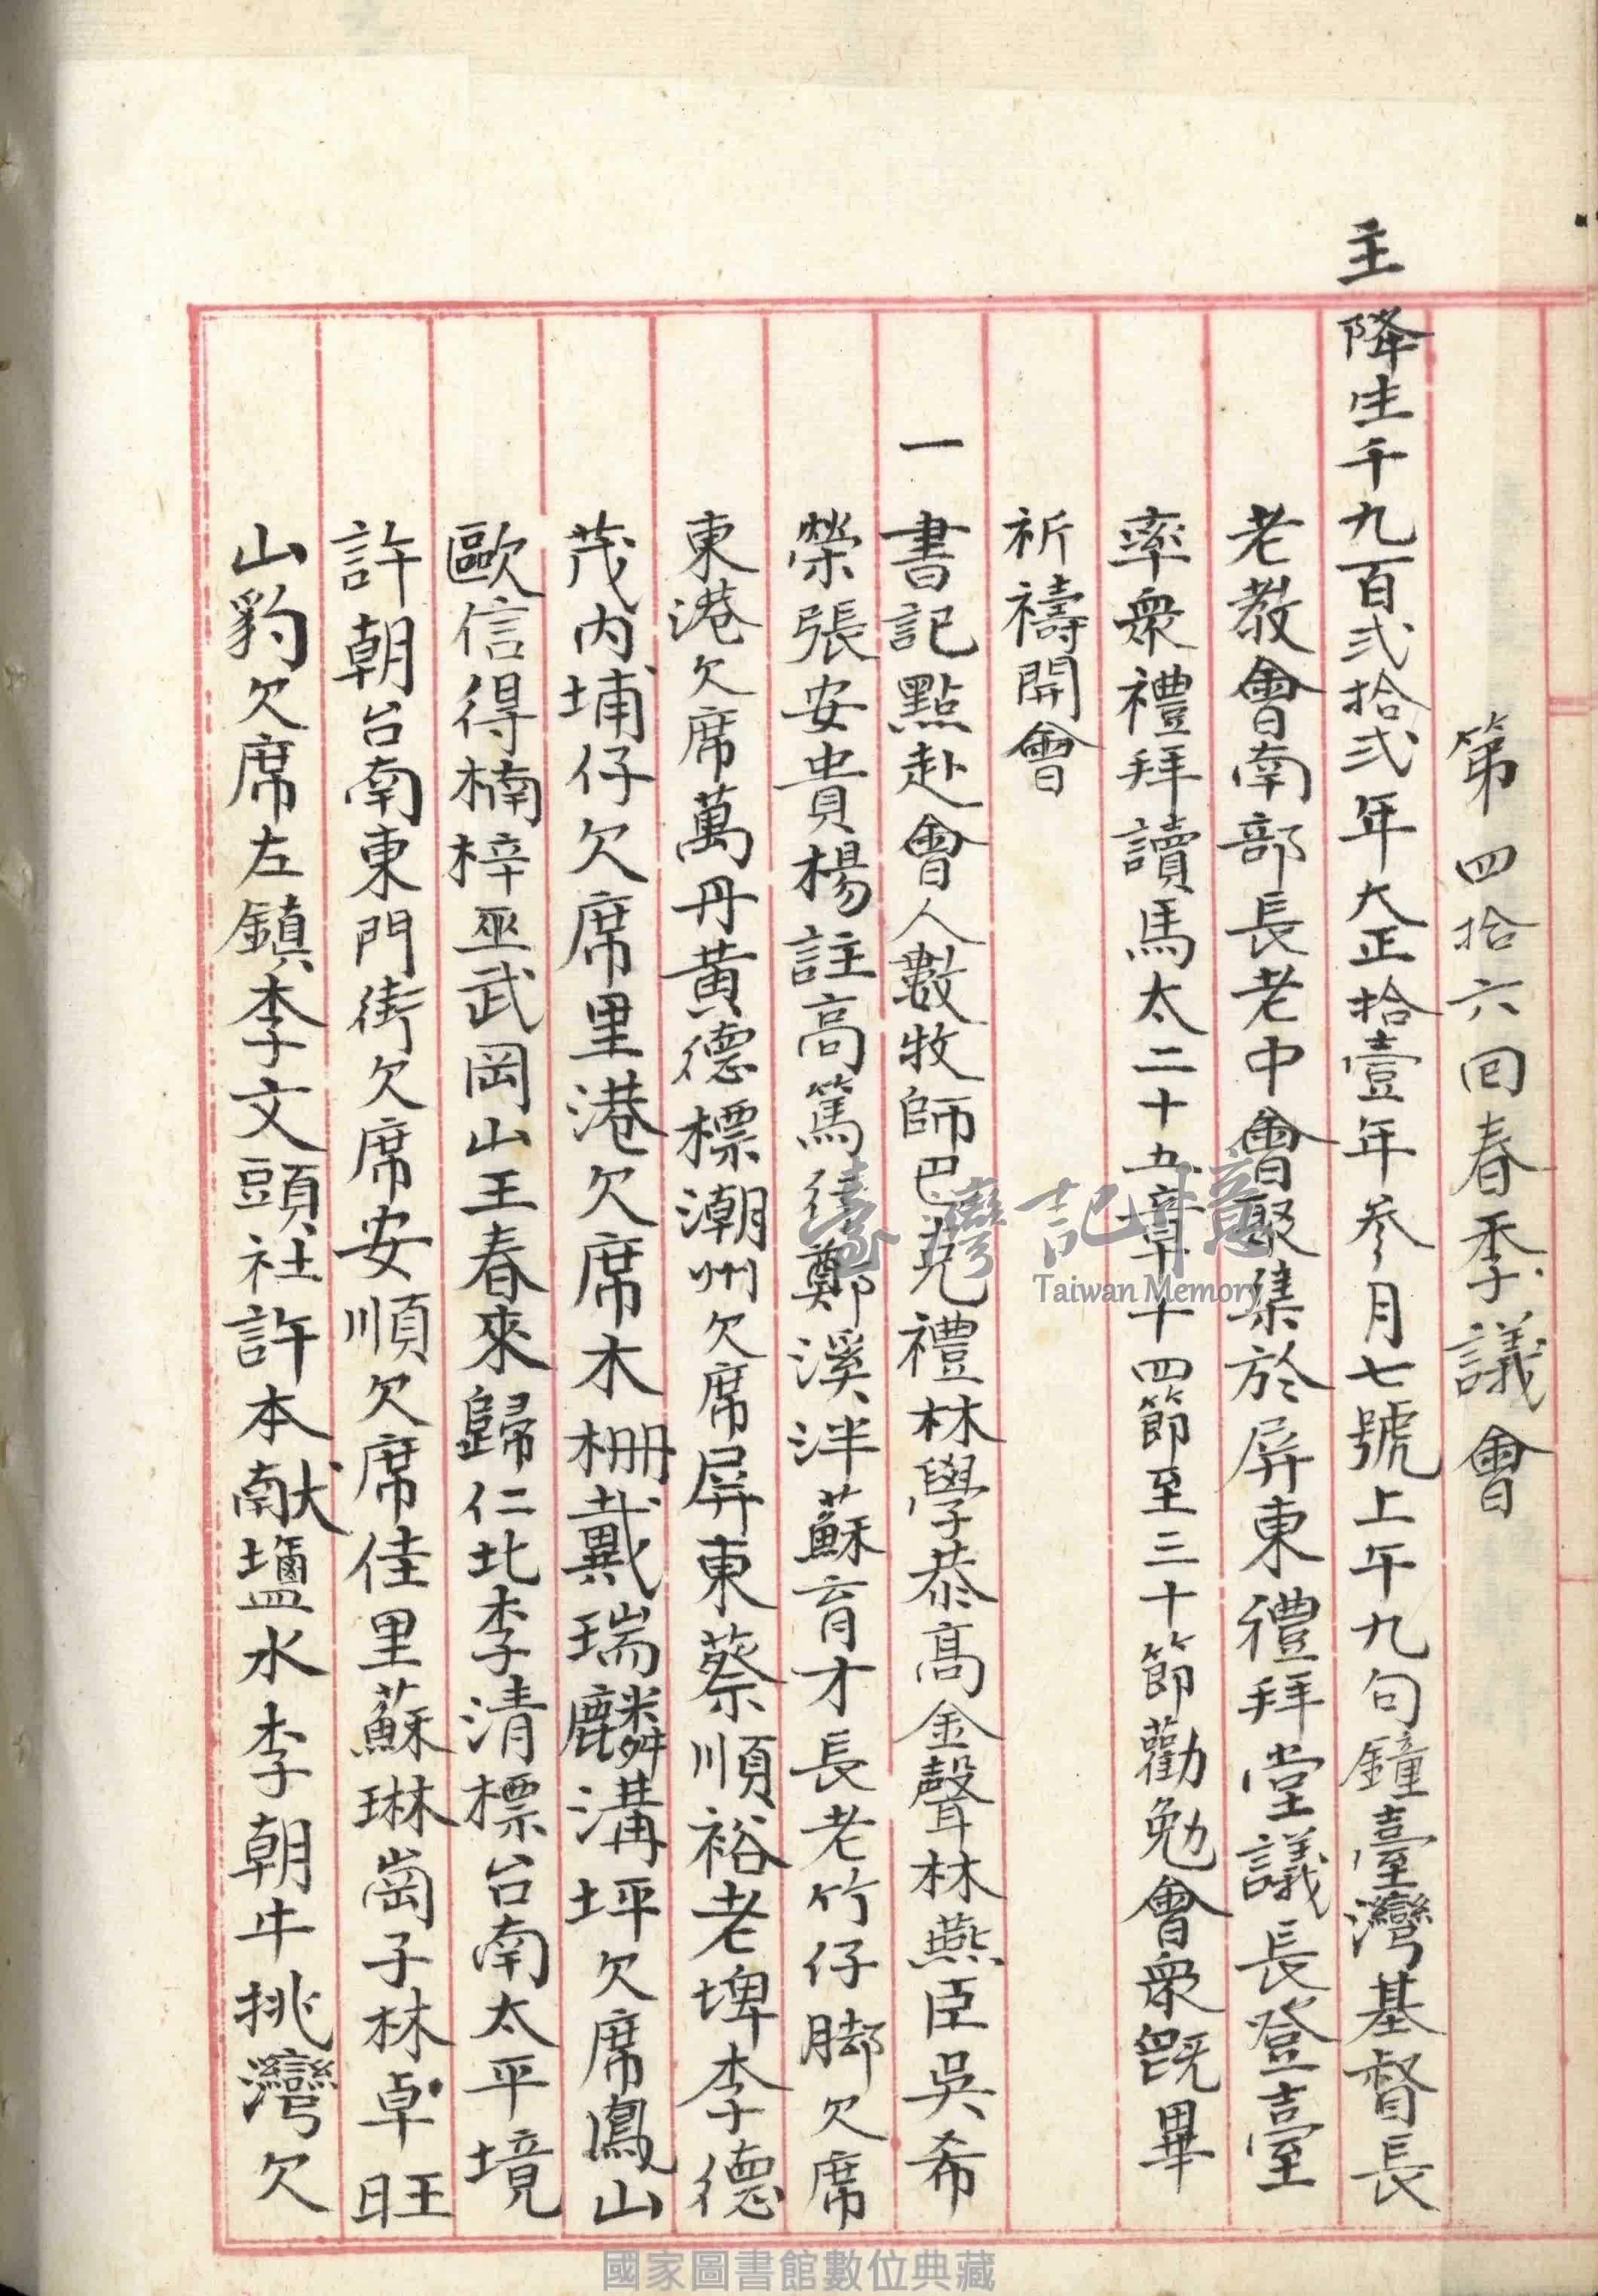 第四拾六回春季議會
主降生千九百弍拾弍年大正拾壹年參月七號上午九句鐘臺灣基督長
老教會南部長老中會聚集於屏東禮拜堂議長登臺
率衆禮拜讀馬太二十五章十四節至三十節勸勉會衆旣畢
祈禱開會
一書記點赴會人數牧師巴克禮林學恭高金聲林燕臣吳希
榮張安貴楊註高篤行鄭溪泮蘇育才長老竹仔脚欠席
東港欠席萬丹黃德標潮州欠席屏東蔡順裕老埤李德
茂內埔仔欠席里港欠席木柵戴瑞麟溝坪欠席鳳山
歐信得楠梓巫武岡山王春來歸仁北李清標台南太平境
許朝台南東門街欠席安順欠席佳里蘇琳崗子林卓旺
山豹欠席左鎮李文頭社許本献塩水李朝牛挑灣欠
臺灣記憶
Taiwan Memory
國家圖書館數位典藏